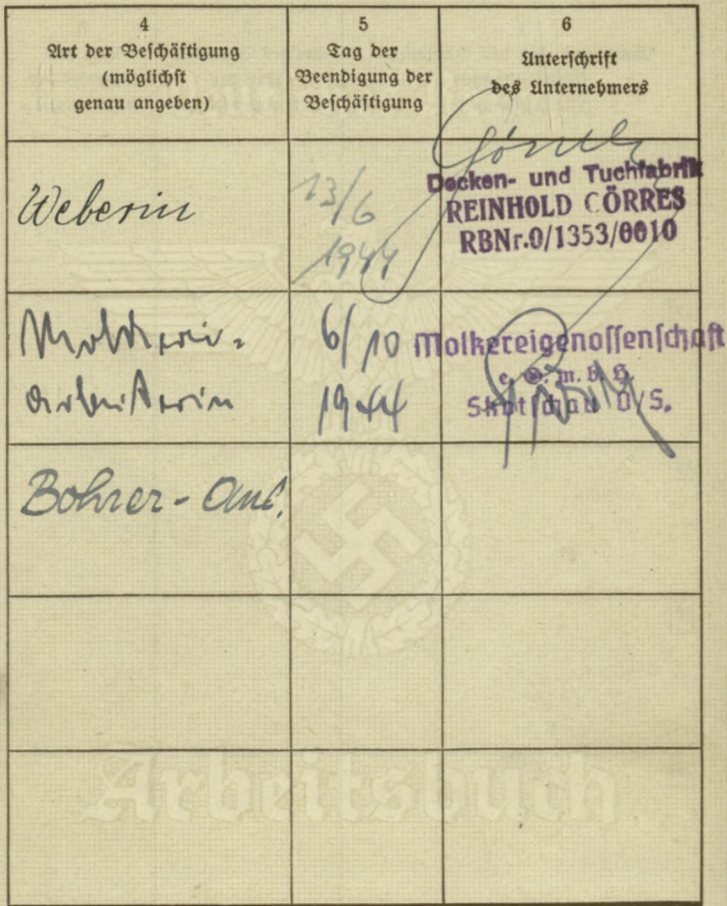 4
Art der Beschäftigung
(möglichst
genau angeben)
5
Tag der
Beendigung der
Beschäftigung
6
Unterschrift
des Unternehmers
Weberin
13/6
1944
Decken- und Tuchfabrik
REINHOLD CÖRRES
RBNr.0/1353/0010
Molkerei-
arbeiterin
6/10
1944
Molkereigenossenschaft
e. G. m. b. H.
Skotschau O/S.
Bohrer-Anl.
Arbeitsbuch